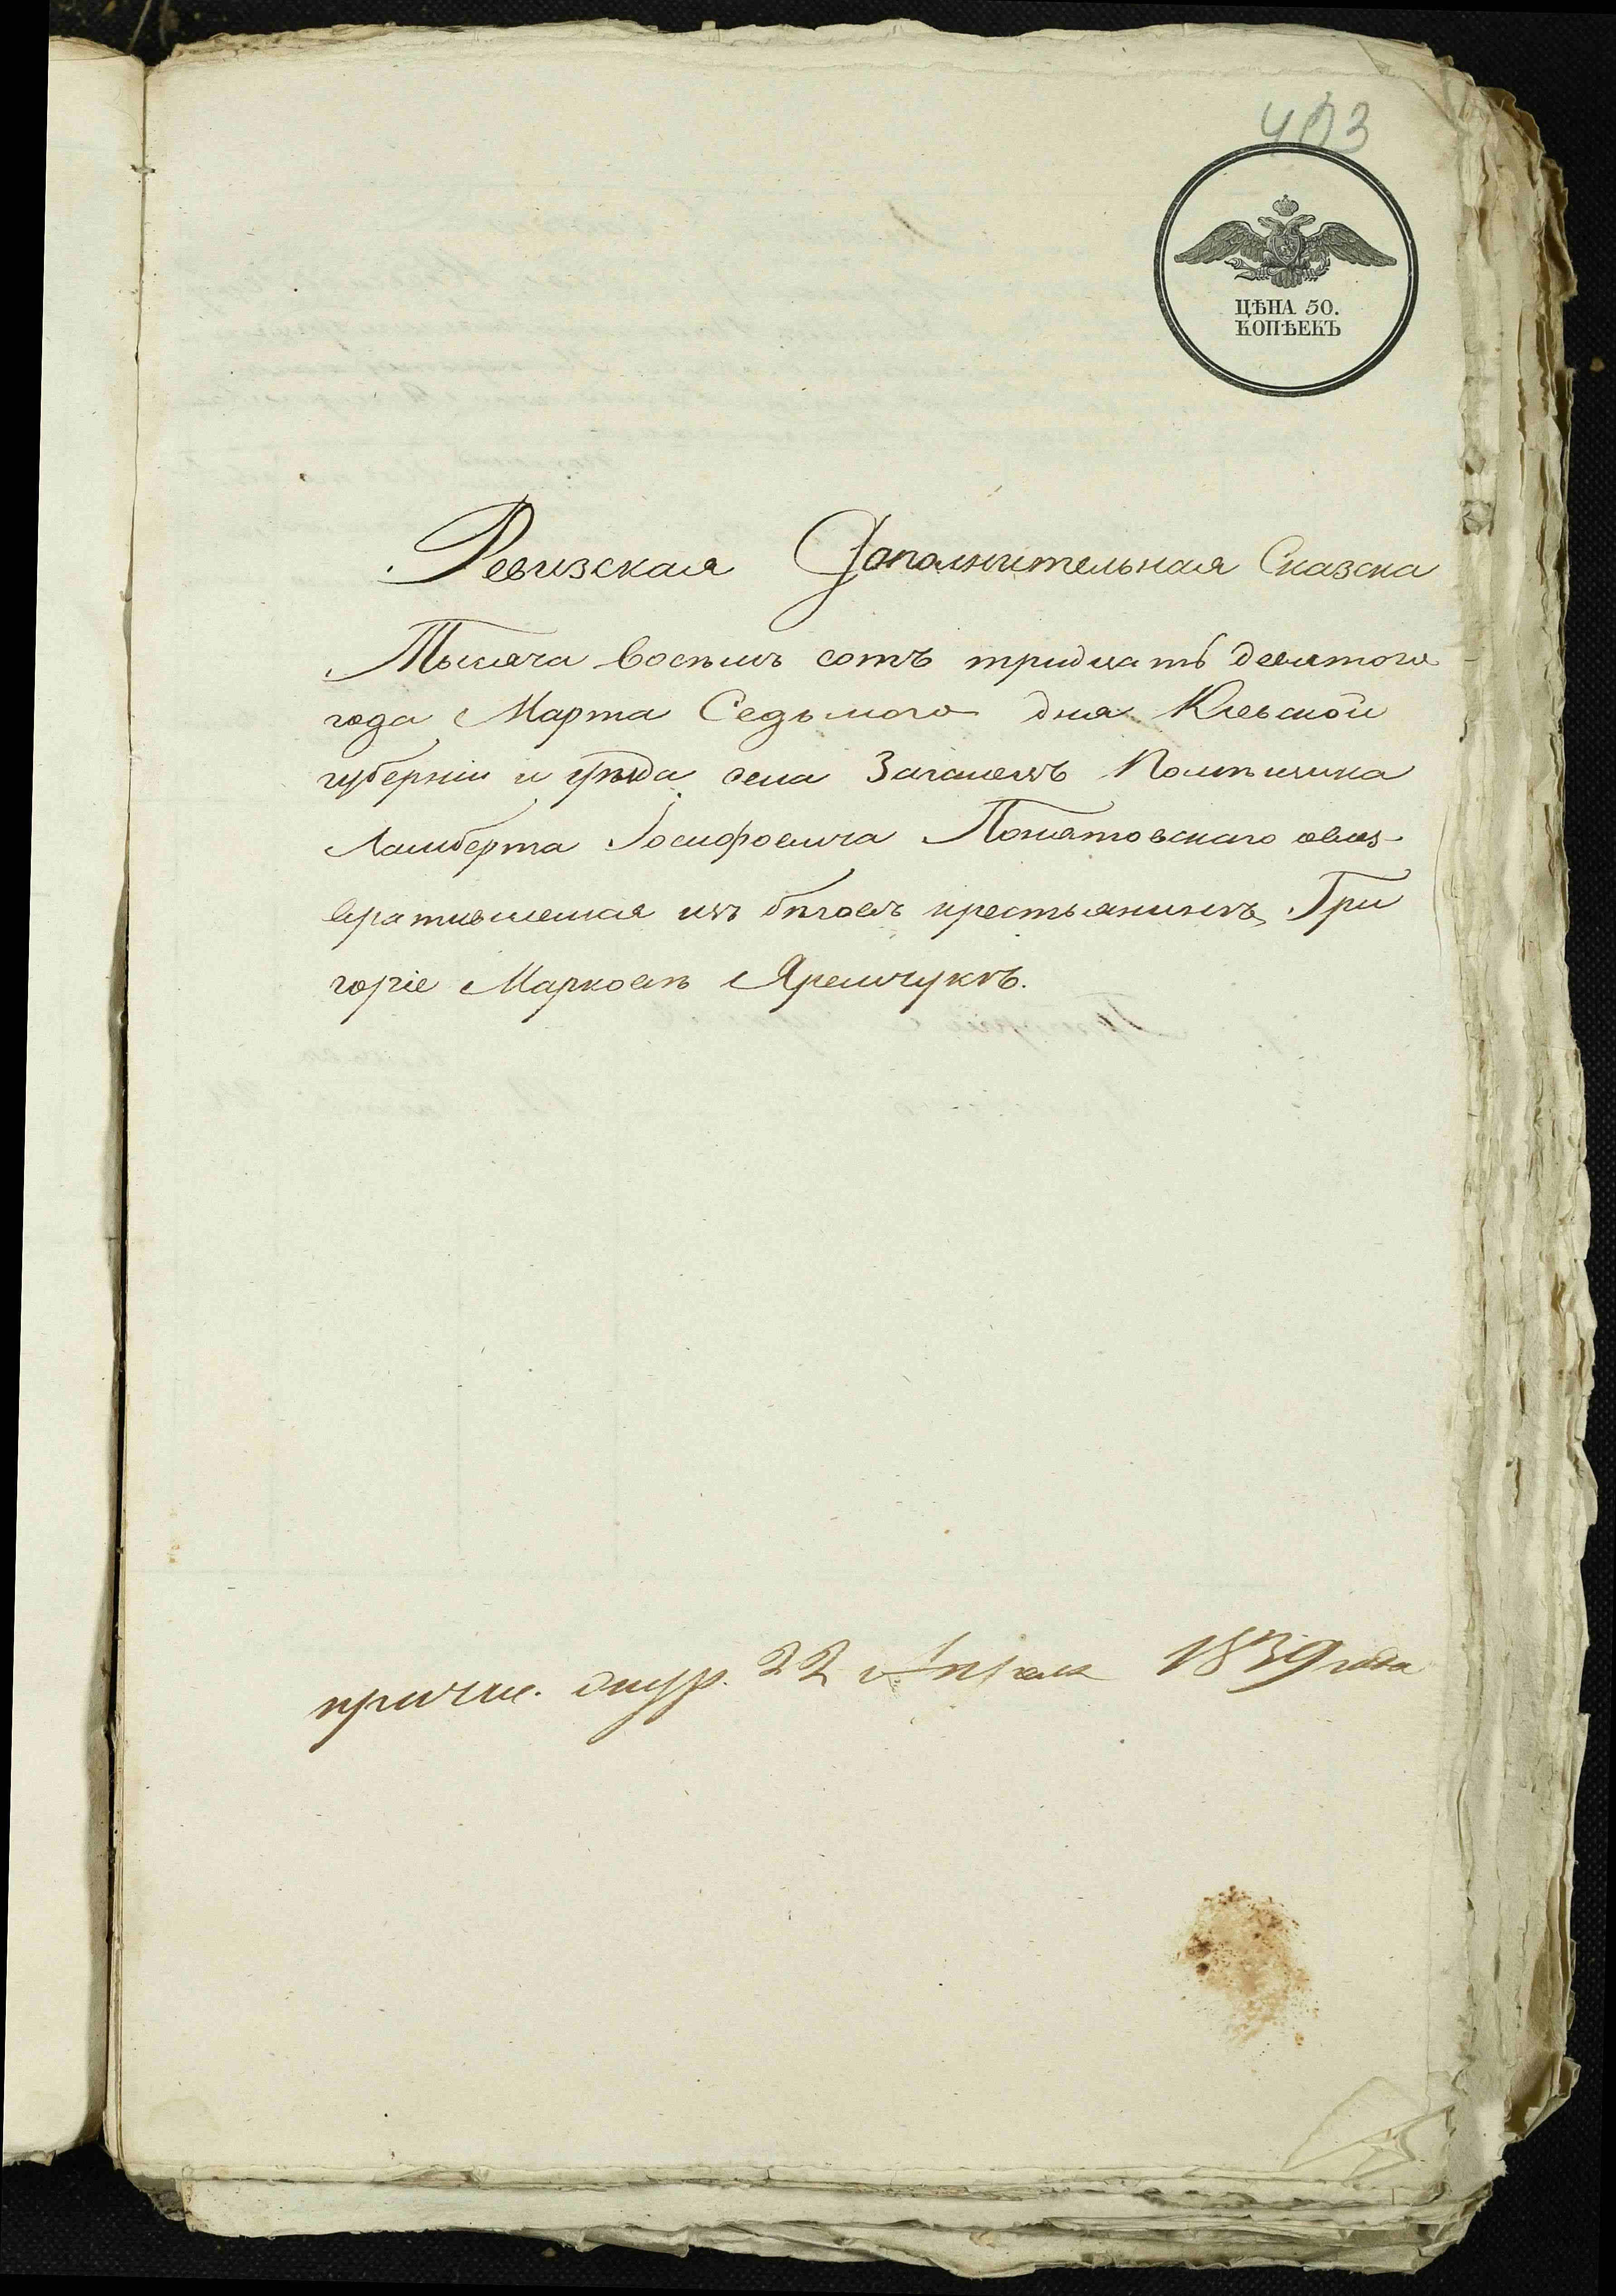 403
ЦѢНА 50.
КОПѢЕКЪ
Ревизская Дополнительная Сказска
Тысяча восѣмъ сотъ тридцать девятого
года Марта Седьмого дня Кіевской
губерніи и уѣзда села Помѣщика
Ламберта Іосифовича Понятовскаго
вратившемся изъ бѣговъ крестьянинѣ Гри
горіе Марковѣ Яремчукѣ.
22 Апрѣля 1839 года